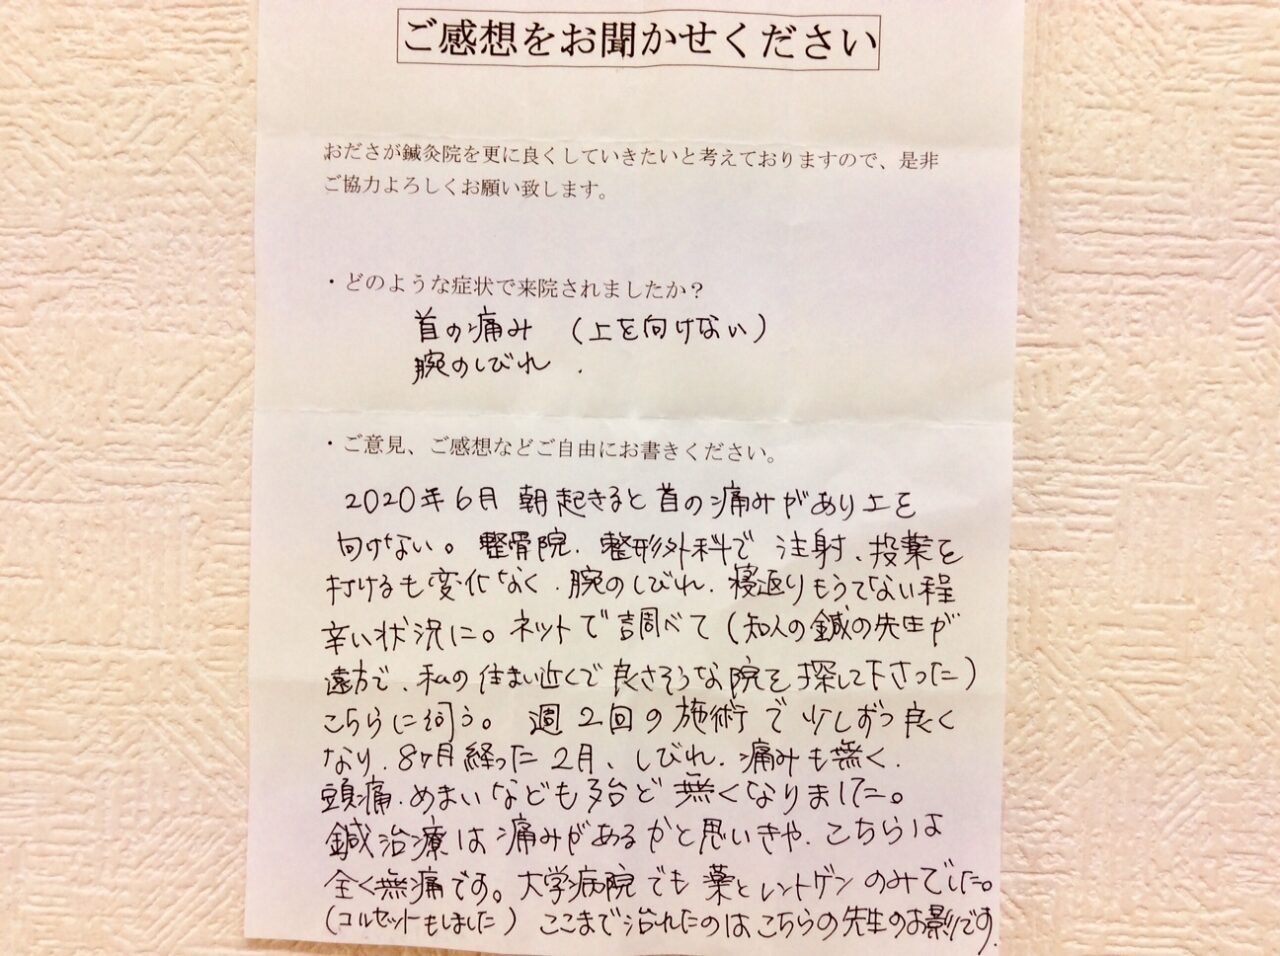 ご感想をお聞かせください
おださが鍼灸院を更に良くしていきたいと考えておりますので、是非
ご協力よろしくお願い致します。
・どのような症状で来院されましたか？
首の痛み （上を向けない）
腕のしびれ .
・ご意見、ご感想などご自由にお書きください。
2020年6月 朝起きると首の痛みがあり上を
向けない。整骨院、整形外科で 注射、投薬を
受けるも変化なく、腕のしびれ、寝返りもうてない程
辛い状況に。ネットで調べて（知人の鍼の先生が
遠方で、私の住まい近くで良さそうな院を探して下さった）
こちらに伺う。 週2回の施術で少しずつ良く
なり、8ヶ月経った2月、しびれ、痛みも無く、
頭痛、めまいなども殆ど無くなりました。
鍼治療は痛みがあるかと思いきや、こちらは
全く無痛です。大学病院でも薬とレントゲンのみでした。
（コルセットもしました） ここまで治れたのはこちらの先生のお影です。